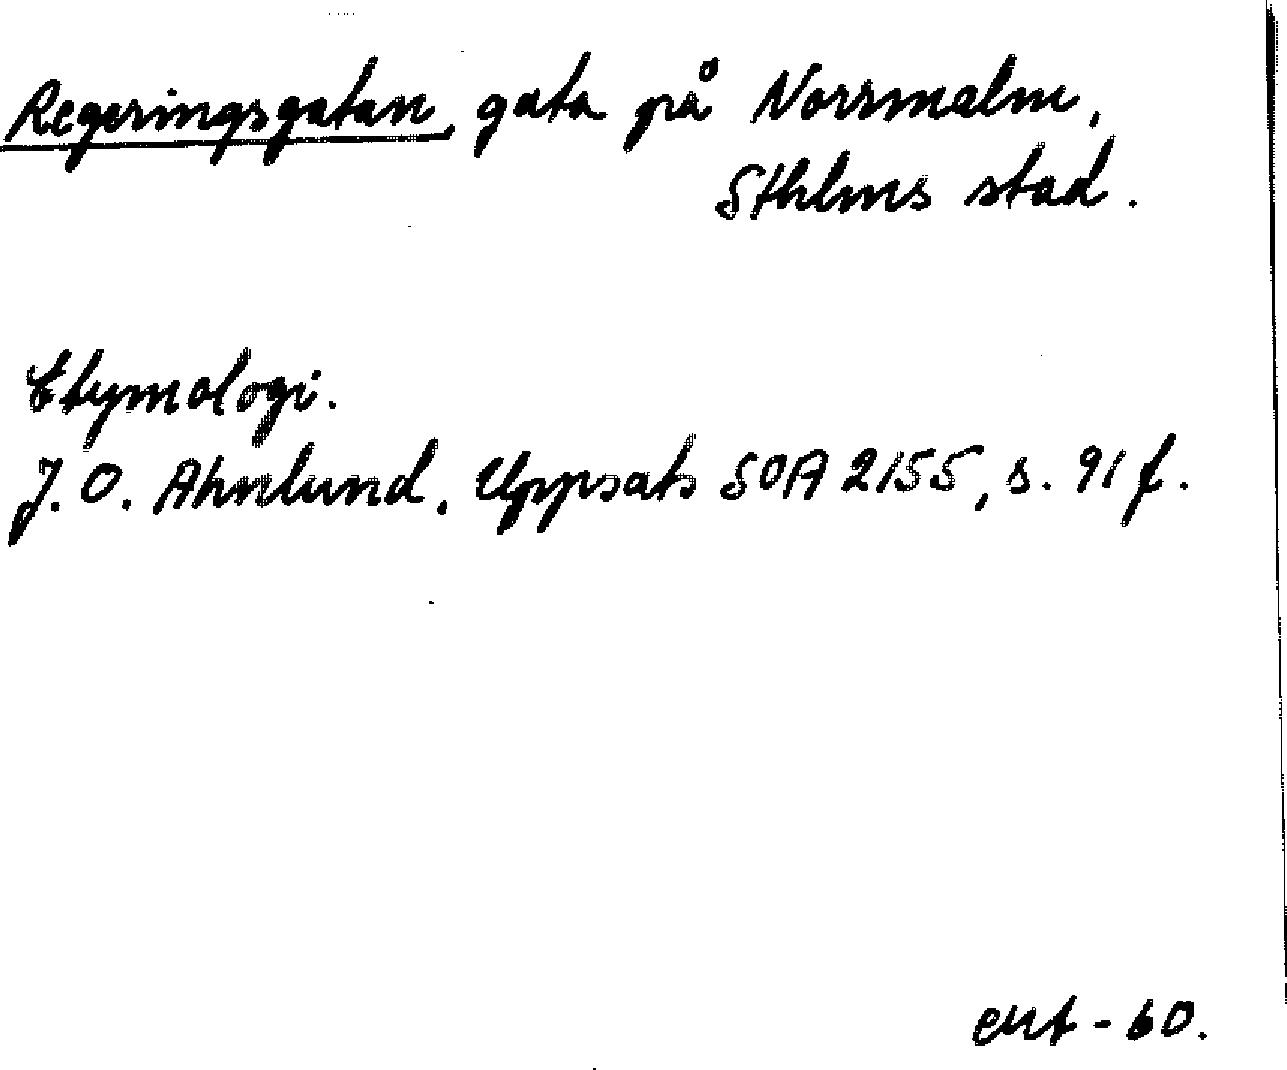 Regeringsgatan, gata på Norrmalm,
Sthlms stad.
Etymologi.
J. O. Ahnlund, Uppsats SOA 2155, s. 91 f.
-60.